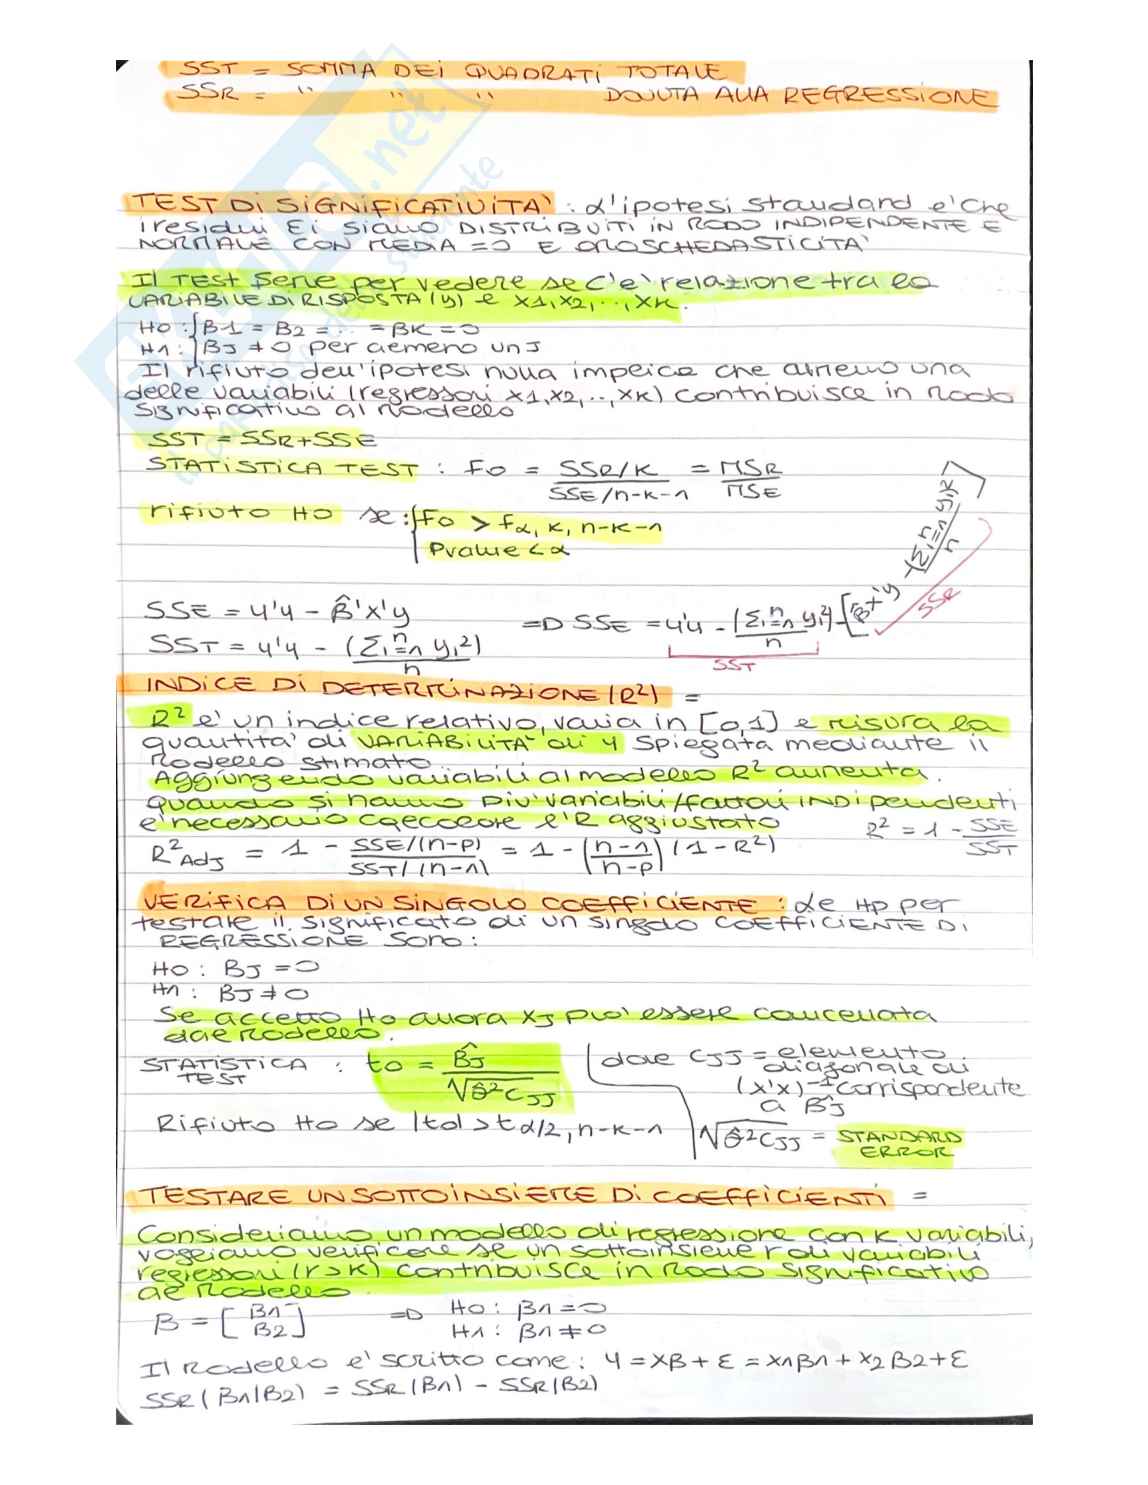 SST = SOMMA DEI QUADRATI TOTALE
SSR = " " " DOVUTA ALLA REGRESSIONE
TEST DI SIGNIFICATIVITA' : L'ipotesi standard e' che
i residui Ei siano DISTRIBUITI IN MODO INDIPENDENTE E
NORMALE CON MEDIA = 0 E OMOSCHEDASTICITA'
Il TEST serve per vedere se c'e' relazione tra la
VARIABILE DI RISPOSTA (y) e x1, x2, .., xK.
H0 : { B1 = B2 = ... = BK = 0
H1 : { BJ ≠ 0 per almeno un J
Il rifiuto dell'ipotesi nulla implica che almeno una
delle variabili (regressori x1, x2, .., xK) contribuisce in modo
significativo al modello
SST = SSR + SSE
STATISTICA TEST : F0 = SSR/K / SSE/n-k-1 = MSR / MSE
rifiuto H0 se : { F0 > fα, k, n-k-1
Pvalue < α
SSE = y'y - β̂'x'y
SST = y'y - (Σi=1^n yi²) / n
=D SSE = y'y - (Σi=1^n yi²) / n - [β̂'x'y - (Σi=1^n yik) / n]
SST
SSR
INDICE DI DETERMINAZIONE (R²) =
R² e' un indice relativo, varia in [0,1] e misura la
quantita' di VARIABILITA' di y spiegata mediante il
modello stimato.
Aggiungendo variabili al modello R² aumenta.
quando si hanno piu' variabili/fattori INDipendenti
e' necessario calcolare l'R aggiustato
R² = 1 - SSE / SST
R²Adj = 1 - SSE/(n-p) / SST/(n-1) = 1 - (n-1 / n-p) (1 - R²)
VERIFICA DI UN SINGOLO COEFFICIENTE : Le Hp per
testare il significato di un singolo COEFFICIENTE DI
REGRESSIONE sono :
H0 : BJ = 0
H1 : BJ ≠ 0
Se accetto H0 allora xJ puo' essere cancellata
dal modello.
STATISTICA TEST : t0 = β̂J / √σ̂²CJJ
dove CJJ = elemento
diagonale di
(x'x)⁻¹ corrispondente
a β̂J
Rifiuto H0 se |t0| > tα/2, n-k-1
√σ̂²CJJ = STANDARD
ERROR
TESTARE UN SOTTOINSIEME DI COEFFICIENTI =
Consideriamo un modello di regressione con K variabili,
vogliamo verificare se un sottoinsieme r di variabili
regressori (r > k) contribuisce in modo significativo
al modello.
β = [B1 B2] =D H0 : β1 = 0
H1 : β1 ≠ 0
Il modello e' scritto come : y = xβ + ε = x1β1 + x2β2 + ε
SSR (β1|β2) = SSR (β1) - SSR (β2)